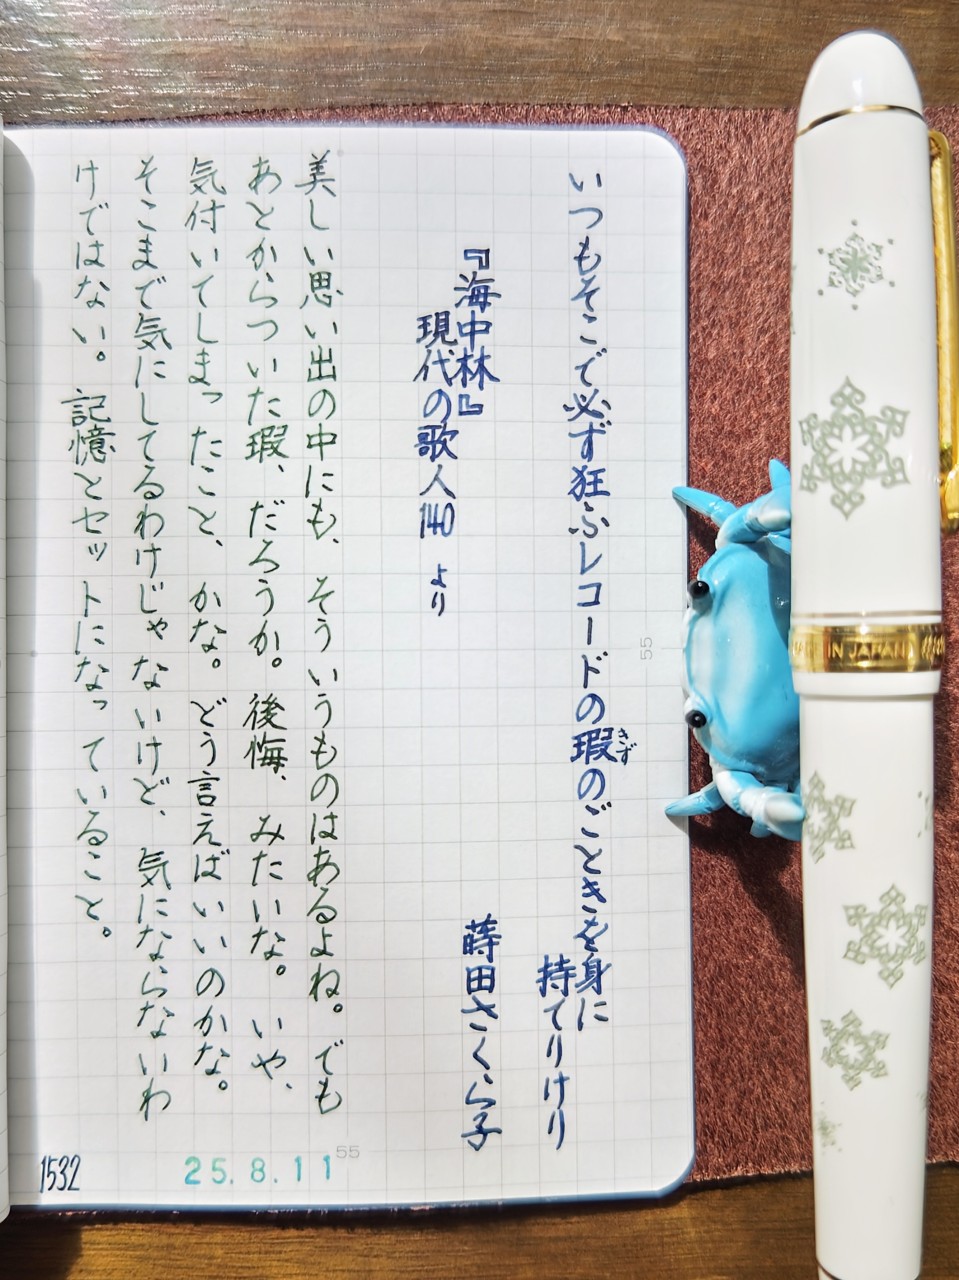 いつもそこで必ず狂ふレコードの瑕のごときを身に
きず
持てりけり
蒔田さくら子
『海中林』
現代の歌人140 より
美しい思い出の中にも、そういうものはあるよね。でも
あとからついた瑕、だろうか。後悔、みたいな。いや、
気付いてしまったこと、かな。どう言えばいいのかな。
そこまで気にしてるわけじゃないけど、気にならないわ
けではない。記憶とセットになっていること。
1532
25.8.11
55
55
MADE IN JAPAN